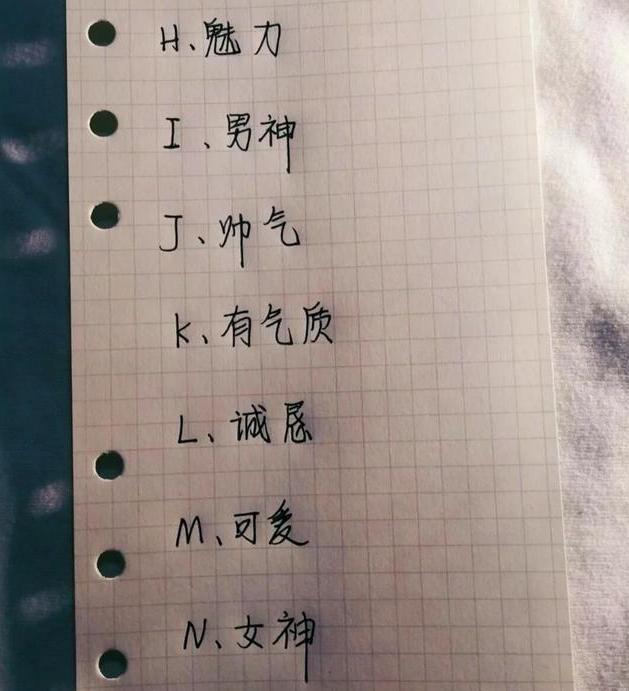 H、魅力
I、男神
J、帅气
K、有气质
L、诚恳
M、可爱
N、女神